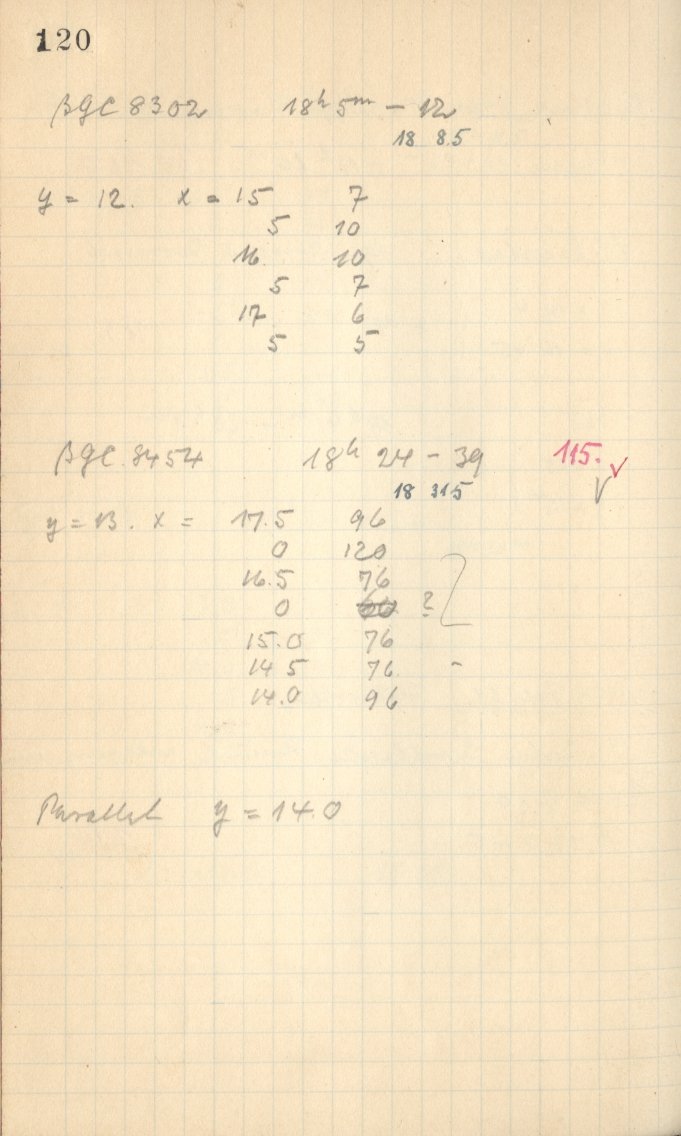 120
βGC 8302 18h 5m - 12
18 8.5
y = 12. x = 15 7
5 10
16. 10
5 7
17 6
5 5
βGC. 8454 18h 24 - 39 115. ✓
18 31.5 ✓
y = 13. x = 17.5 96
0 120
16.5 76
0 60 ?
15.0 76
14 5 76 -
14.0 96
Parallel y = 14.0